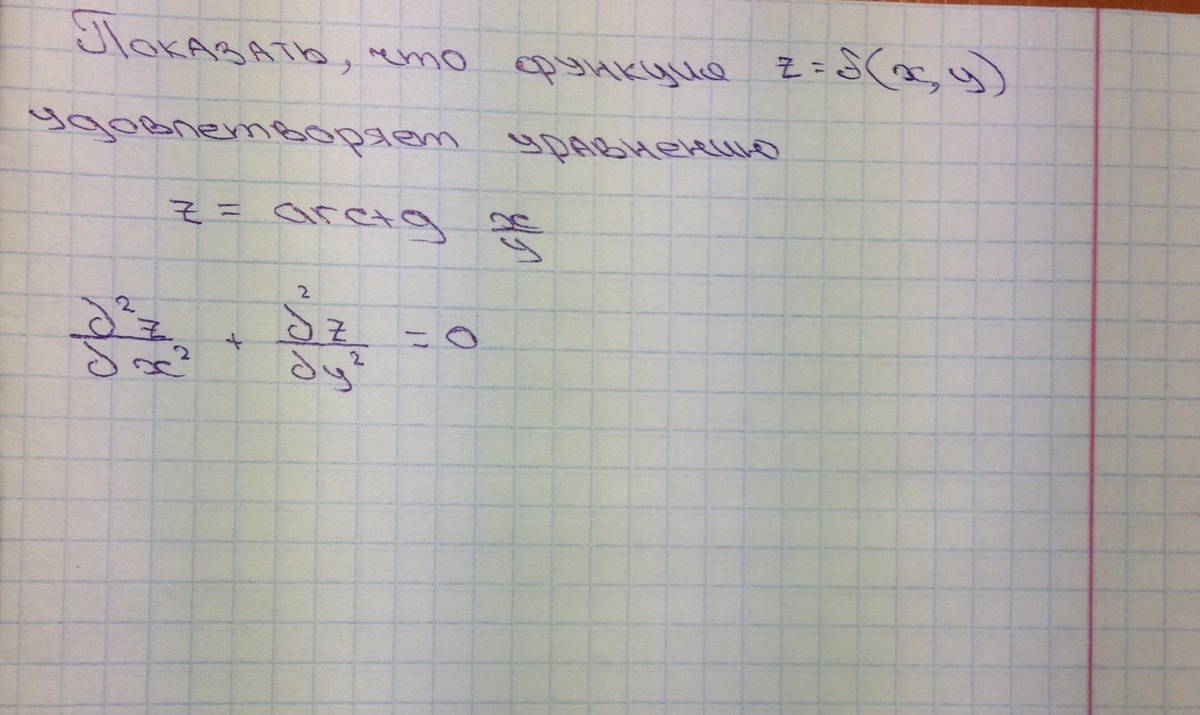 Показать, что функция z = f(x, y)
удовлетворяет уравнению
z = arctg x/y
∂²z/∂x² + ∂²z/∂y² = 0